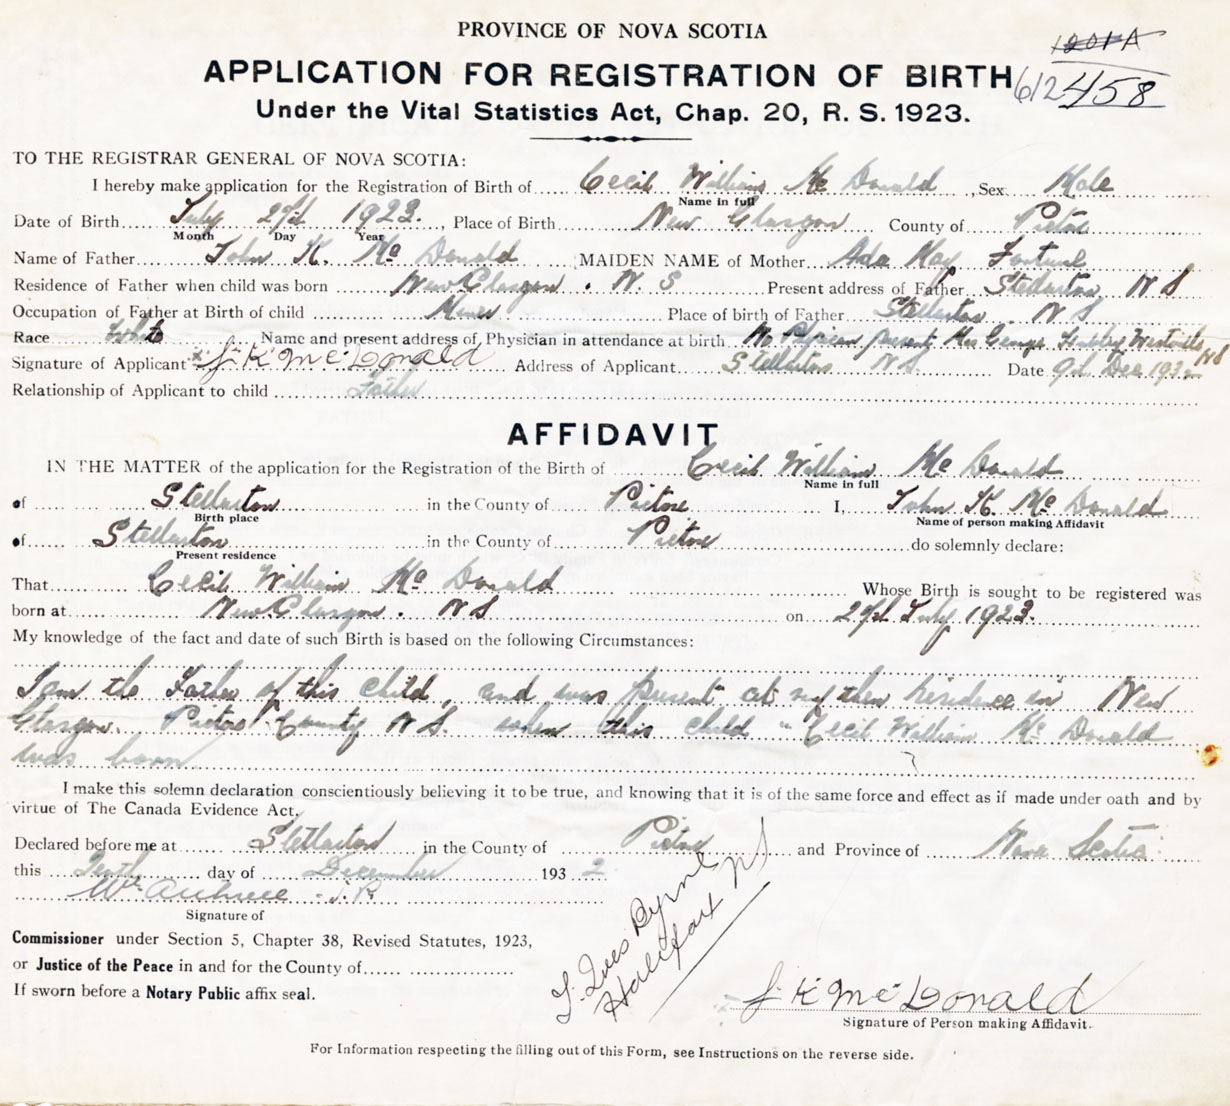 PROVINCE OF NOVA SCOTIA
1201A
APPLICATION FOR REGISTRATION OF BIRTH 612458
Under the Vital Statistics Act, Chap. 20, R. S. 1923.
TO THE REGISTRAR GENERAL OF NOVA SCOTIA:
I hereby make application for the Registration of Birth of Cecil William Mc Donald, Sex Male
Name in full
Date of Birth July 27th 1923., Place of Birth New Glasgow County of Pictou
Month Day Year
Name of Father John K. Mc Donald MAIDEN NAME of Mother Ada May Fortune
Residence of Father when child was born New Glasgow. N S Present address of Father Stellarton, N S
Occupation of Father at Birth of child Miner Place of birth of Father Stellarton. N S
Race White Name and present address of Physician in attendance at birth No Physician present Mrs George Westville NS
Signature of Applicant x J. K Mc Donald Address of Applicant Stellarton NS. Date 9th Dec 1932
Relationship of Applicant to child Father
AFFIDAVIT
IN THE MATTER of the application for the Registration of the Birth of Cecil William Mc Donald
Name in full
of Stellarton in the County of Pictou I, John K. Mc Donald
Birth place Name of person making Affidavit
of Stellarton in the County of Pictou do solemnly declare:
Present residence
That Cecil William Mc Donald Whose Birth is sought to be registered was
born at New Glasgow. N S on 27th July 1923.
My knowledge of the fact and date of such Birth is based on the following Circumstances:
I am the Father of this child, and was present at my then residence in New
Glasgow. Pictou County N S. when this child "Cecil William Mc Donald
was born
I make this solemn declaration conscientiously believing it to be true, and knowing that it is of the same force and effect as if made under oath and by
virtue of The Canada Evidence Act.
Declared before me at Stellarton in the County of Pictou and Province of Nova Scotia
this Tenth day of December 193 2
Wm J P
Signature of
Commissioner under Section 5, Chapter 38, Revised Statutes, 1923,
or Justice of the Peace in and for the County of
If sworn before a Notary Public affix seal.
J. Ives Byrne
Halifax NS
J. K Mc Donald
Signature of Person making Affidavit.
For Information respecting the filling out of this Form, see Instructions on the reverse side.